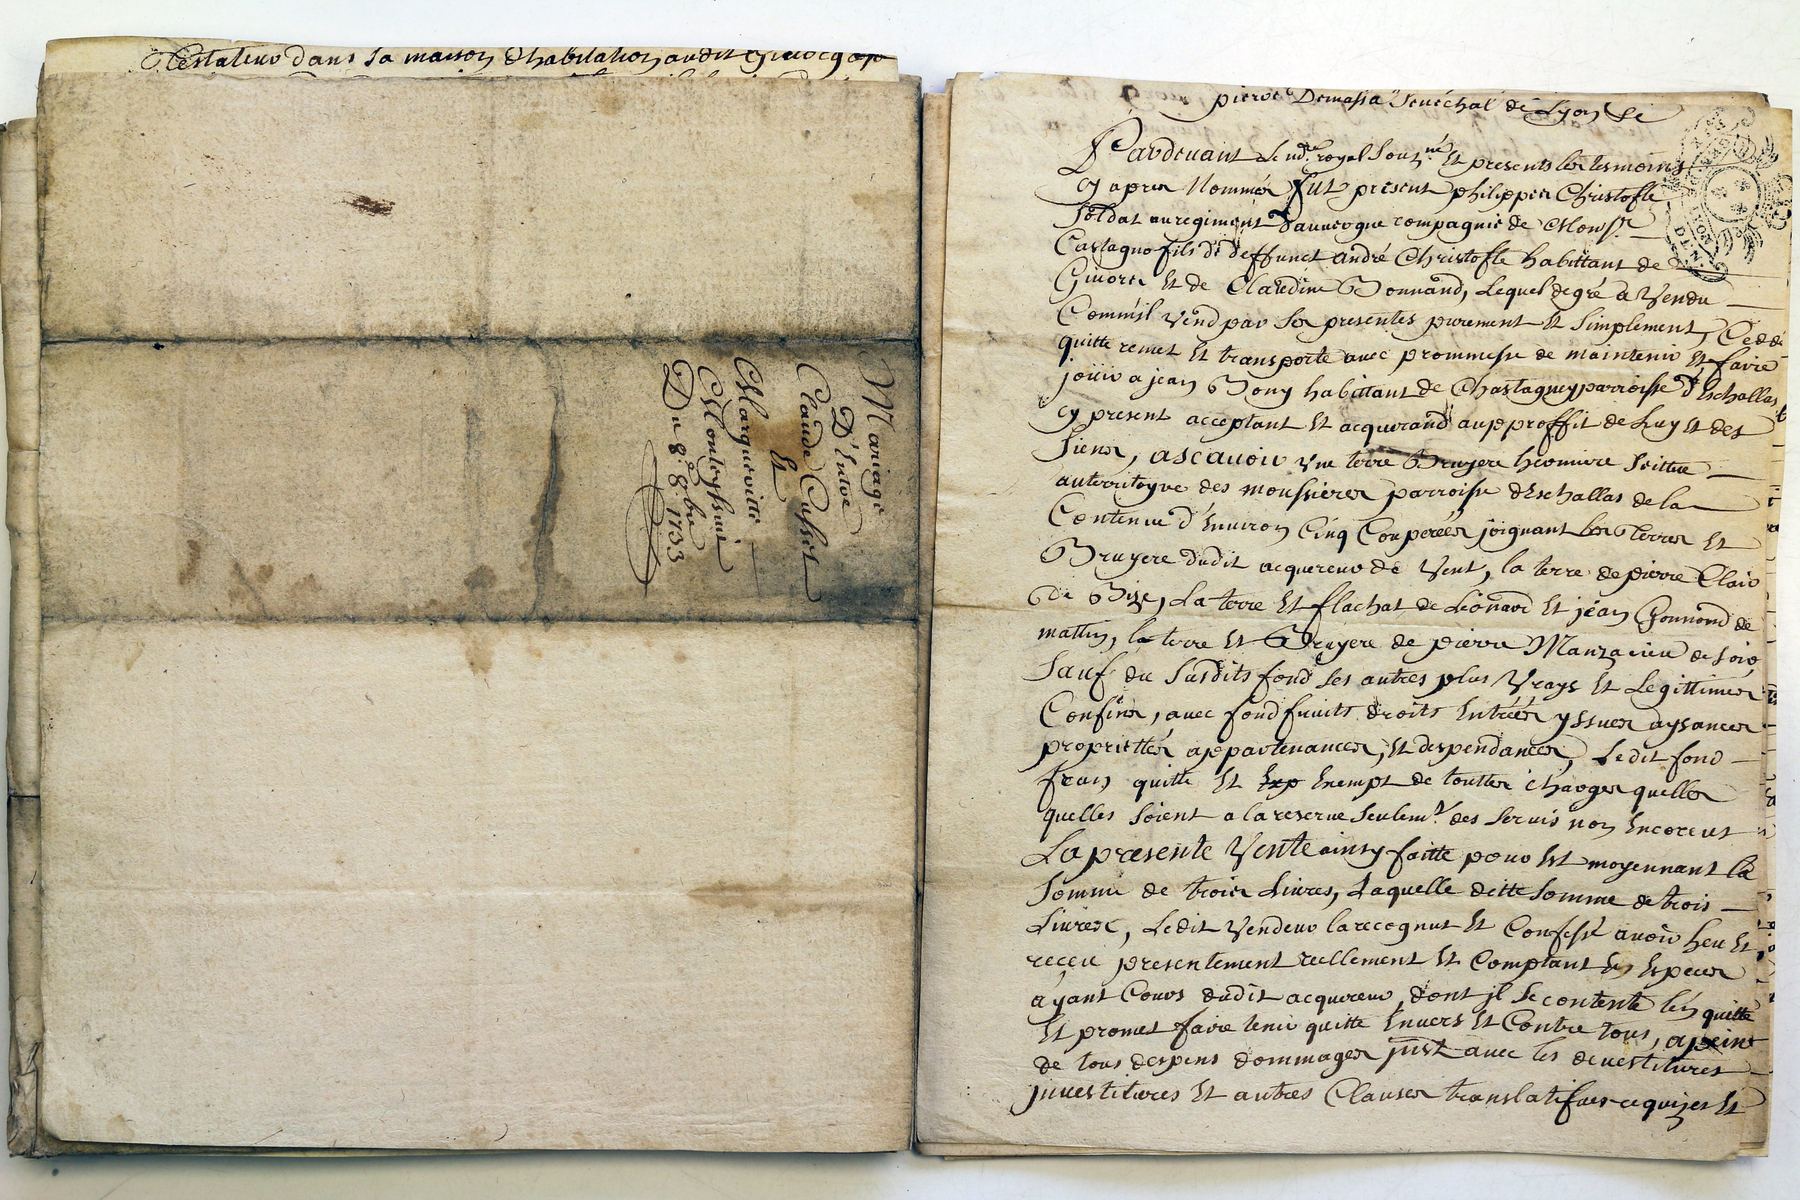 testateur dans sa maison d'habitation audit
Mariage
D'Entre
Claude Cusset
Et
Margueritte
Du 8. 8bre 1733
pierre Demassa Senéchal de Lyon
Pardevant le nd.re royal Sousné Et presents les tesmoins
cy apres Nommés fut present philippes Christofle
Soldat au regiment Dauvergne compagnie de Monsr
Castagno fils de deffunct andré Christofle habittant de
Givors Et de Claudine Bonnand, Lequel de gré a Vendu
Comm'il Vend par Ses presentes purement Et Simplement, Cedde
quitte remet Et transporte avec prommesse de maintenir Et faire
jouir a jean Bony habittant de Chastagny parroisse d'Eschallas
cy present acceptant Et acquerand au proffit de Luy Et des
Siens, ascavoir Vne terre Bruyere hermire Scittue
au territoyre des moussieres parroisse d'Eschallas de la
Contenue d'Environ Cinq Couperées joignant les terres Et
Bruyere dudit acquereur de Vent, la terre de pierre Clair
De Bize, La terre Et flachat de Léonard Et jean Gonnond de
mattin, la terre Et Bruyere de pierre Manzacieu de Soir
Sauf du Susdits fond Ses autres plus Vrays Et Legittimes
Confins, avec fond fruits droits Entrées yssues aysances
proprietés appartenances, Et despendances, Ledit fond
franc quitte Et Exp Exempt de touttes charges quelles
quelles Soient a la reserve Seulemt. des Servis non Encoreus
La presente Vente ainsy faitte pour Et moyennant la
Somme de trois Livres, Laquelle ditte Somme de trois
Livres, Ledit Vendeur la recognut Et Confesse avoir heu Et
receu presentement reellement Et Comptant En Especes
ayant Cours dudit acquereur, dont il Se contente l'en quitte
Et promet faire tenir quitte Envers Et Contre tous, a peine
de tous despens dommages jnst avec les devestitures
jnvestitures Et autres Clauses translatifves requizes Et